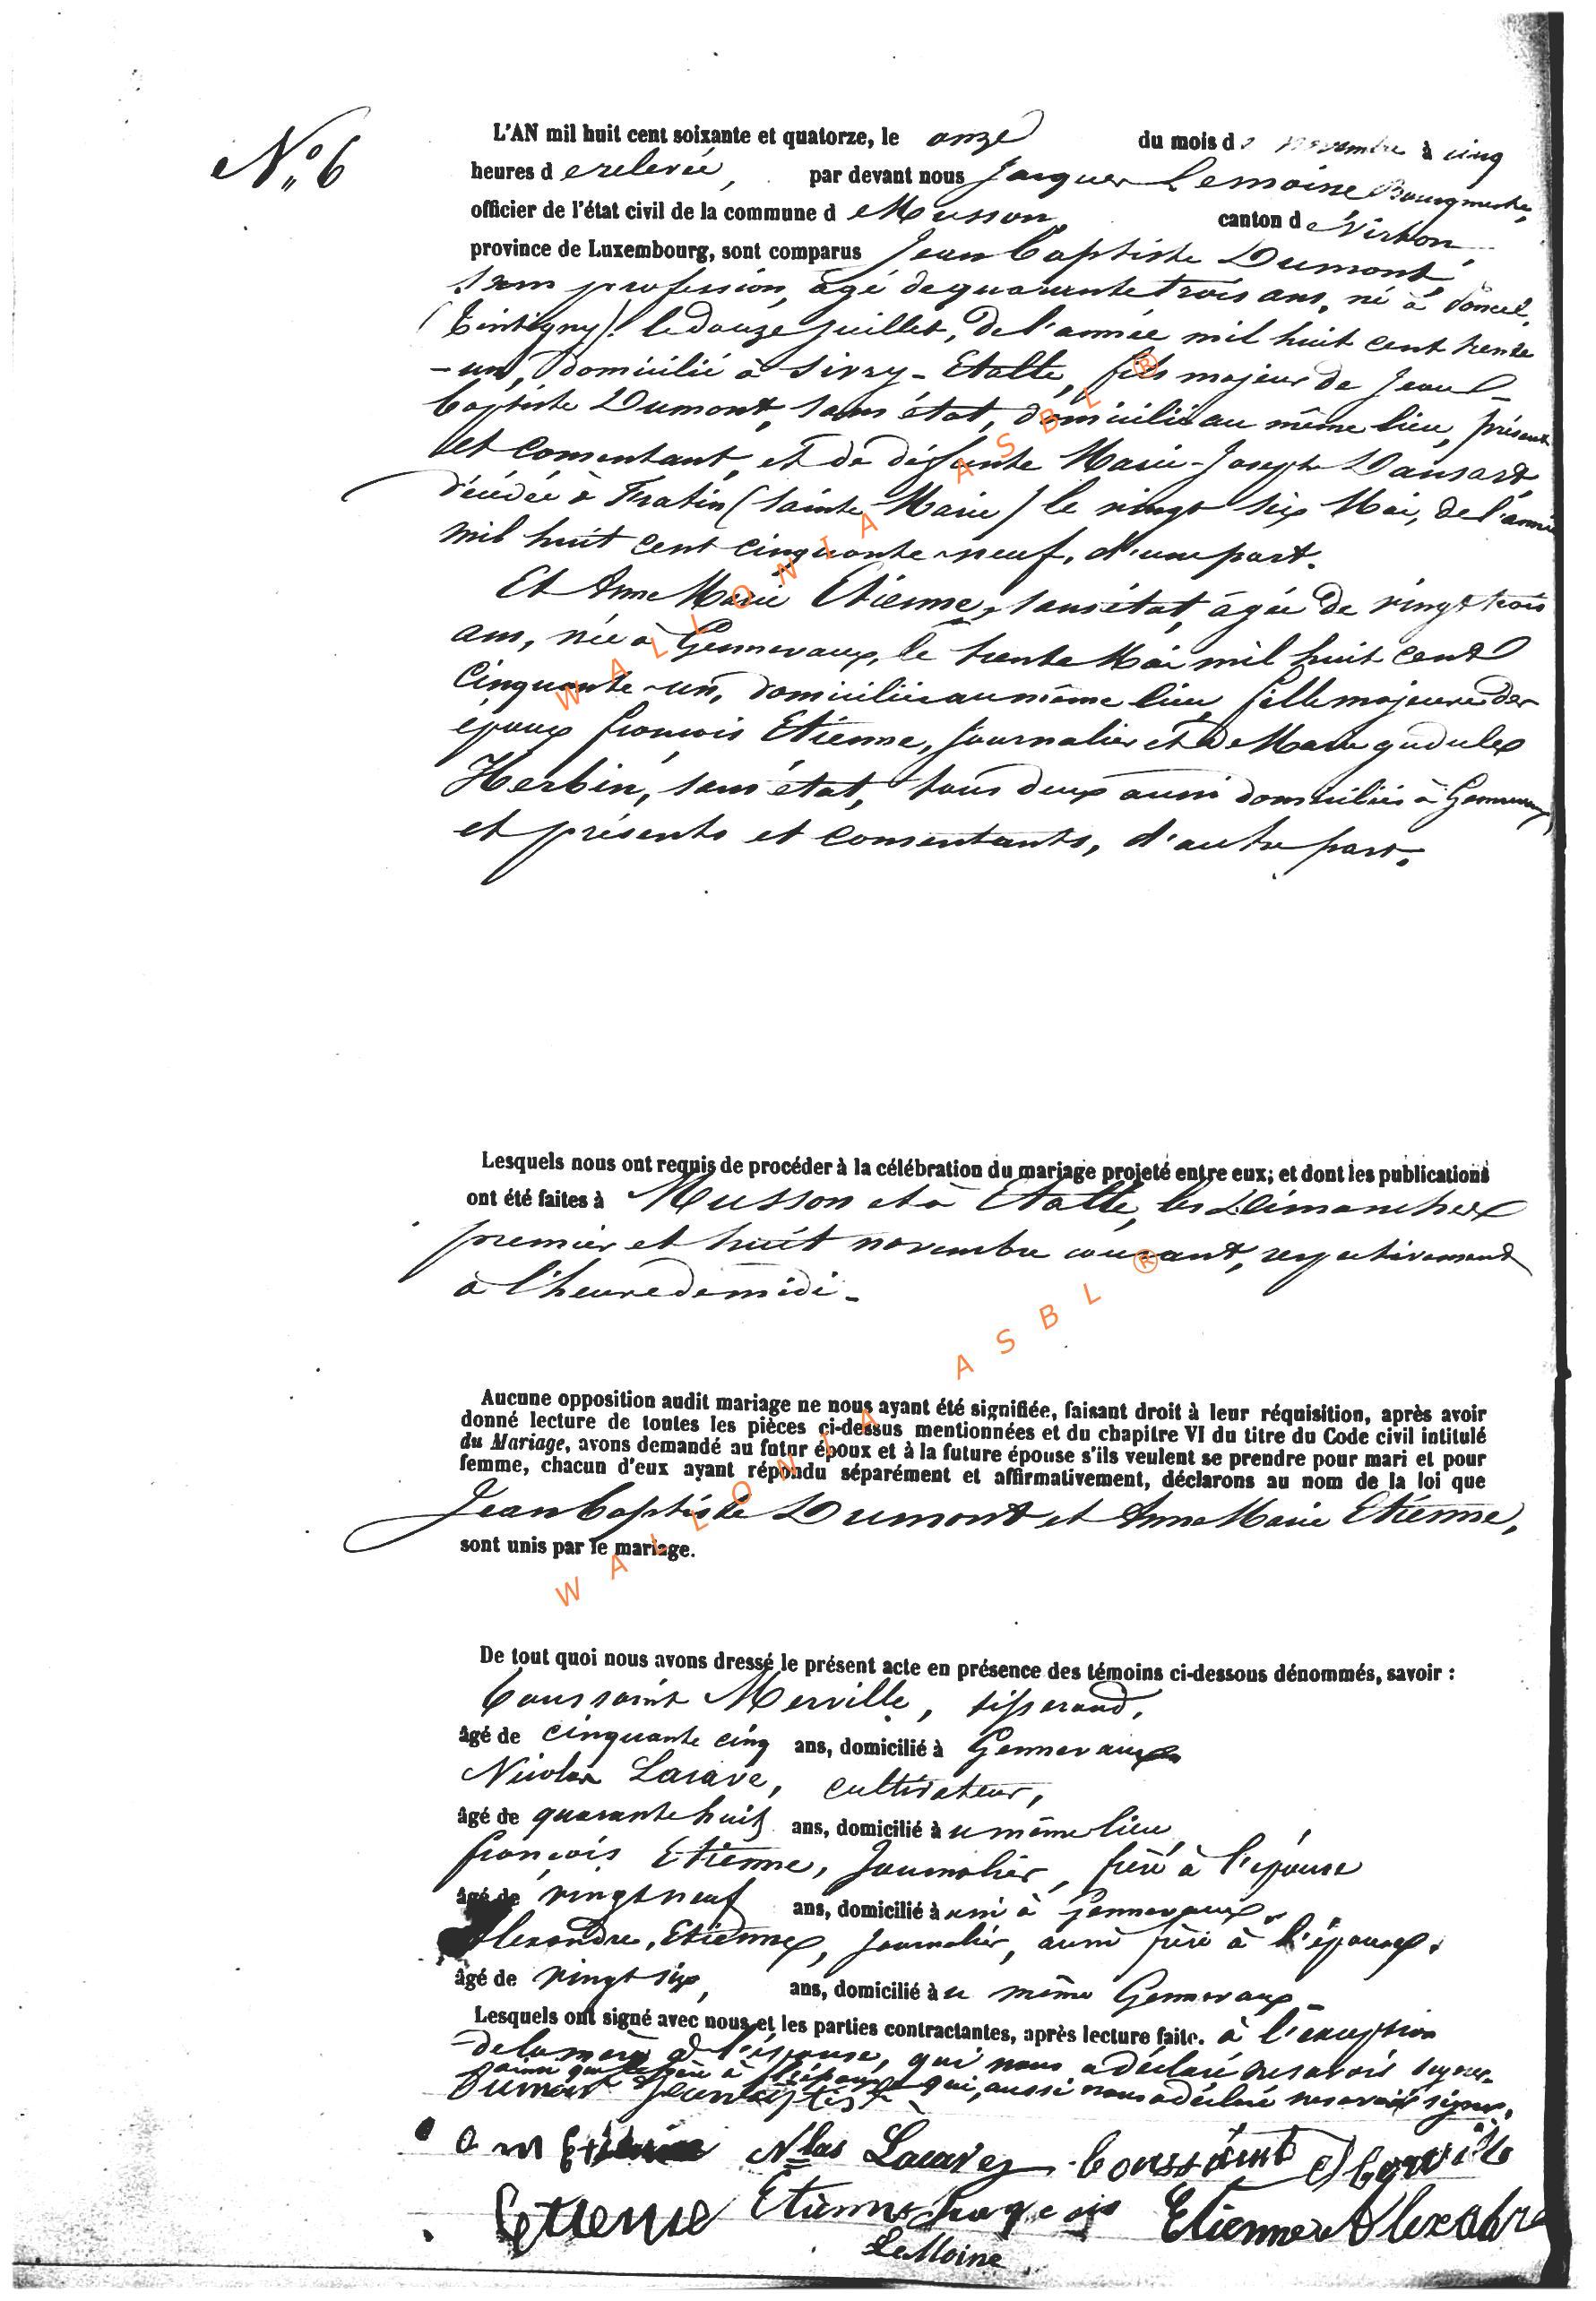 N° 6
L'AN mil huit cent soixante et quatorze, le onze du mois de novembre à cinq
heures de relevée, par devant nous Jacques Lemoine Bourgmestre,
officier de l'état civil de la commune de Musson, canton de Virton,
province de Luxembourg, sont comparus Jean Baptiste Dumont,
sans profession, âgé de quarante trois ans, né à Poncel,
(Tintigny) le douze juillet, de l'année mil huit cent trente
-un, domicilié à Sivry-Etalle, fils majeur de Jean
Baptiste Dumont, sans état, domicilié au même lieu, présent
et consentant, et de défunte Marie-Joseph Dansart
décédée à Fratin (Sainte Marie) le vingt six Mai, de l'année
mil huit cent cinquante-neuf, d'une part.
Et Anne Marie Etienne, sans état, âgée de vingt trois
ans, née à Gennevaux, le trente Mai mil huit cent
cinquante-un, domiciliée au même lieu, fille majeure des
époux françois Etienne, journalier et de Marie gudule
Herbin, sans état, tous deux aussi domiciliés à Gennevaux
et présents et consentants, d'autre part.
Lesquels nous ont requis de procéder à la célébration du mariage projeté entre eux; et dont les publications
ont été faites à Musson et à Etalle, les Dimanches
premier et huit novembre courant, respectivement
à l'heure de midi -
Aucune opposition audit mariage ne nous ayant été signifiée, faisant droit à leur réquisition, après avoir
donné lecture de toutes les pièces ci-dessus mentionnées et du chapitre VI du titre du Code civil intitulé
du Mariage, avons demandé au futur époux et à la future épouse s'ils veulent se prendre pour mari et pour
femme, chacun d'eux ayant répondu séparément et affirmativement, déclarons au nom de la loi que
Jean Baptiste Dumont et Anne Marie Etienne,
sont unis par le mariage.
De tout quoi nous avons dressé le présent acte en présence des témoins ci-dessous dénommés, savoir :
Toussaint Merville, tisserand,
âgé de cinquante cinq ans, domicilié à Gennevaux
Nicolas Lacave, cultivateur,
âgé de quarante huit ans, domicilié à u même lieu
françois Etienne, journalier, frère à l'épouse
âgé de vingt neuf ans, domicilié à ussi à Gennevaux.
Alexandre Etienne, journalier, aussi frère à l'épouse,
âgé de vingt six, ans, domicilié à u même Gennevaux -
Lesquels ont signé avec nous et les parties contractantes, après lecture faite. à l'exception
de la mère de l'épouse, qui nous a déclaré ne savoir signer.
ainsi que le père à l'époux qui, aussi nous a déclaré ne savoir signer.
Dumont Jean Baptiste
a m Etienne Nlas Lacave Toussaint Merville
Etienne Etienne françois Etienne Alexandre
LeMoine
WALLONIA ASBL ®
WALLONIA ASBL ®